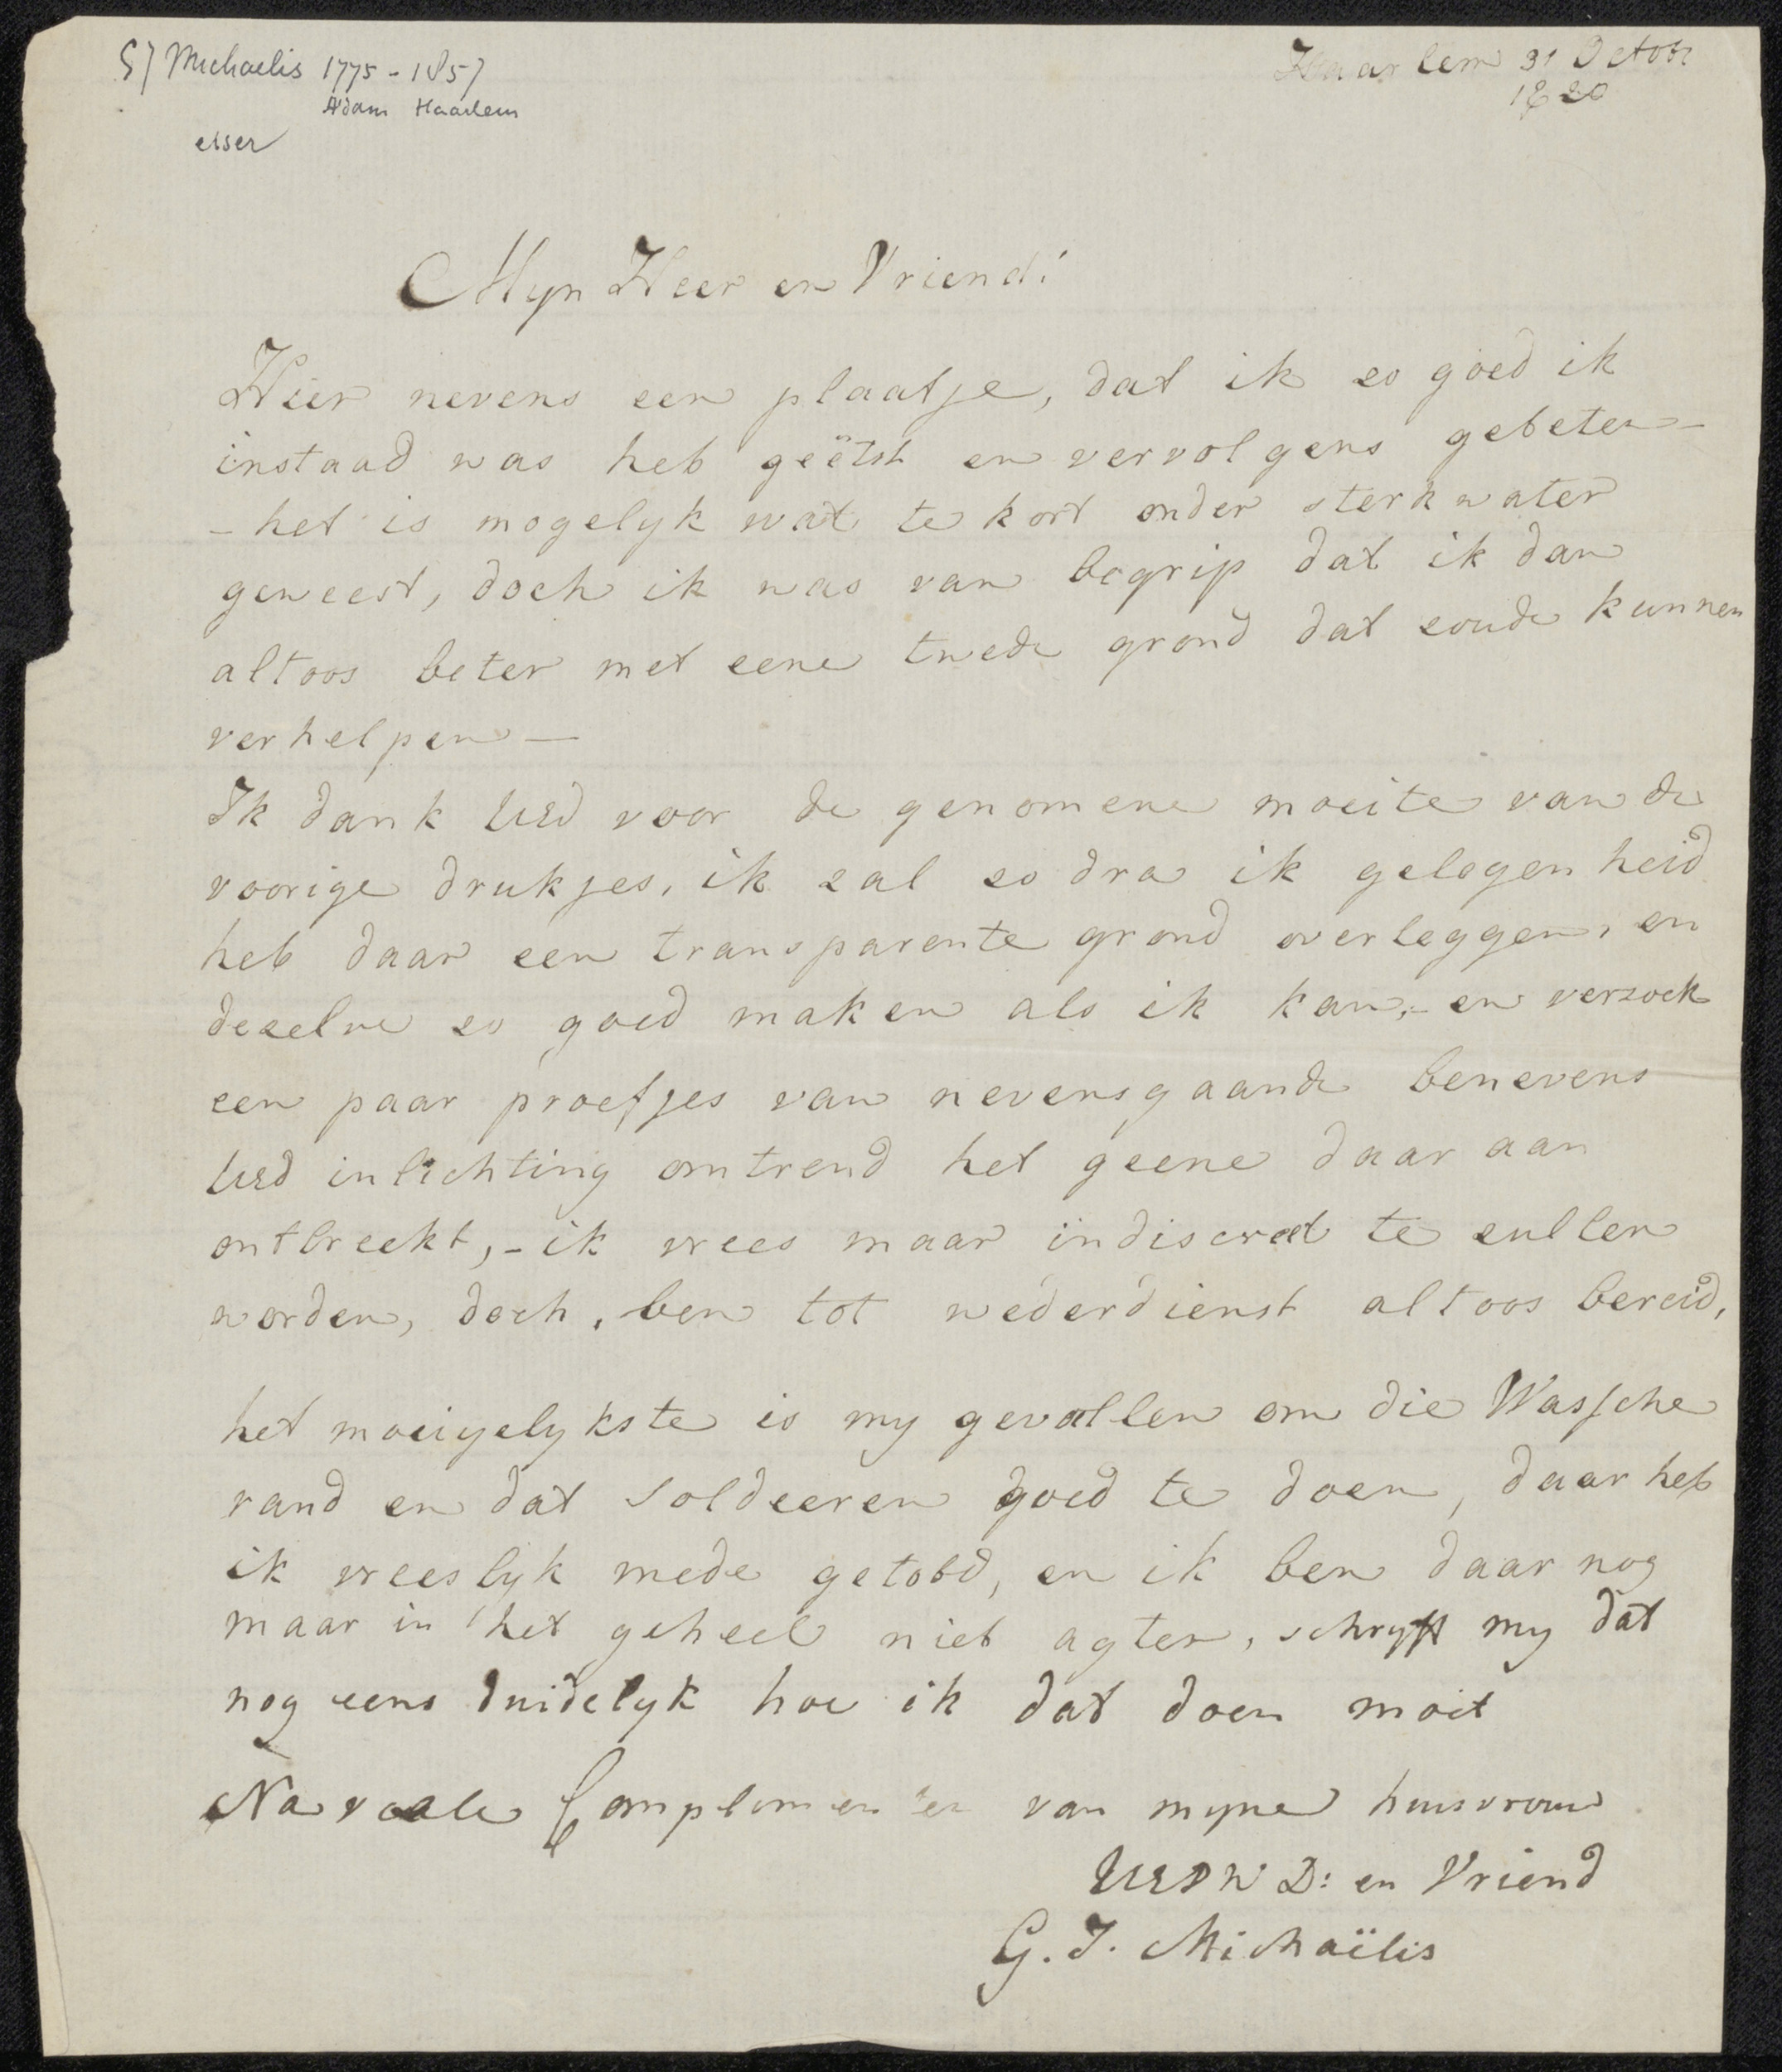 GJ Michaelis 1775-1857
A'dam Haarlem
esser
Haarlem 31 Octobr
1820
Myn Heer en Vriend!
Hier nevens een plaatje, dat ik zo goed ik
instaad was heb geëtst en vervolgens gebeten-
- het is mogelyk wat te kort onder sterk water
geweest, doch ik was van begrip dat ik dan
altoos beter met eene twede grond dat zoude kunnen
verhelpen —
Ik dank UEd voor de genomene moeite van de
voorige drukjes, ik zal zo dra ik gelegenheid
heb daar een transparente grond overleggen, en
dezelve zo goed maken als ik kan,- en verzoek
een paar proefjes van nevensgaande benevens
UEd inlichting omtrend het geene daar aan
ontbreekt,- ik vrees maar indiscreet te zullen
worden, doch, ben tot wederdienst altoos bereid,
het moeiyelykste is my gevallen om die Wassche
rand en dat soldeeren goed te doen, daar heb
ik vreeslyk mede getobd, en ik ben daar nog
maar in het geheel niet agter, schryft my dat
nog eens duidelyk hoe ik dat doen moet
Na veele Complimenten van myne huisvrouw
UEDW D: en Vriend
G. J. Michaëlis